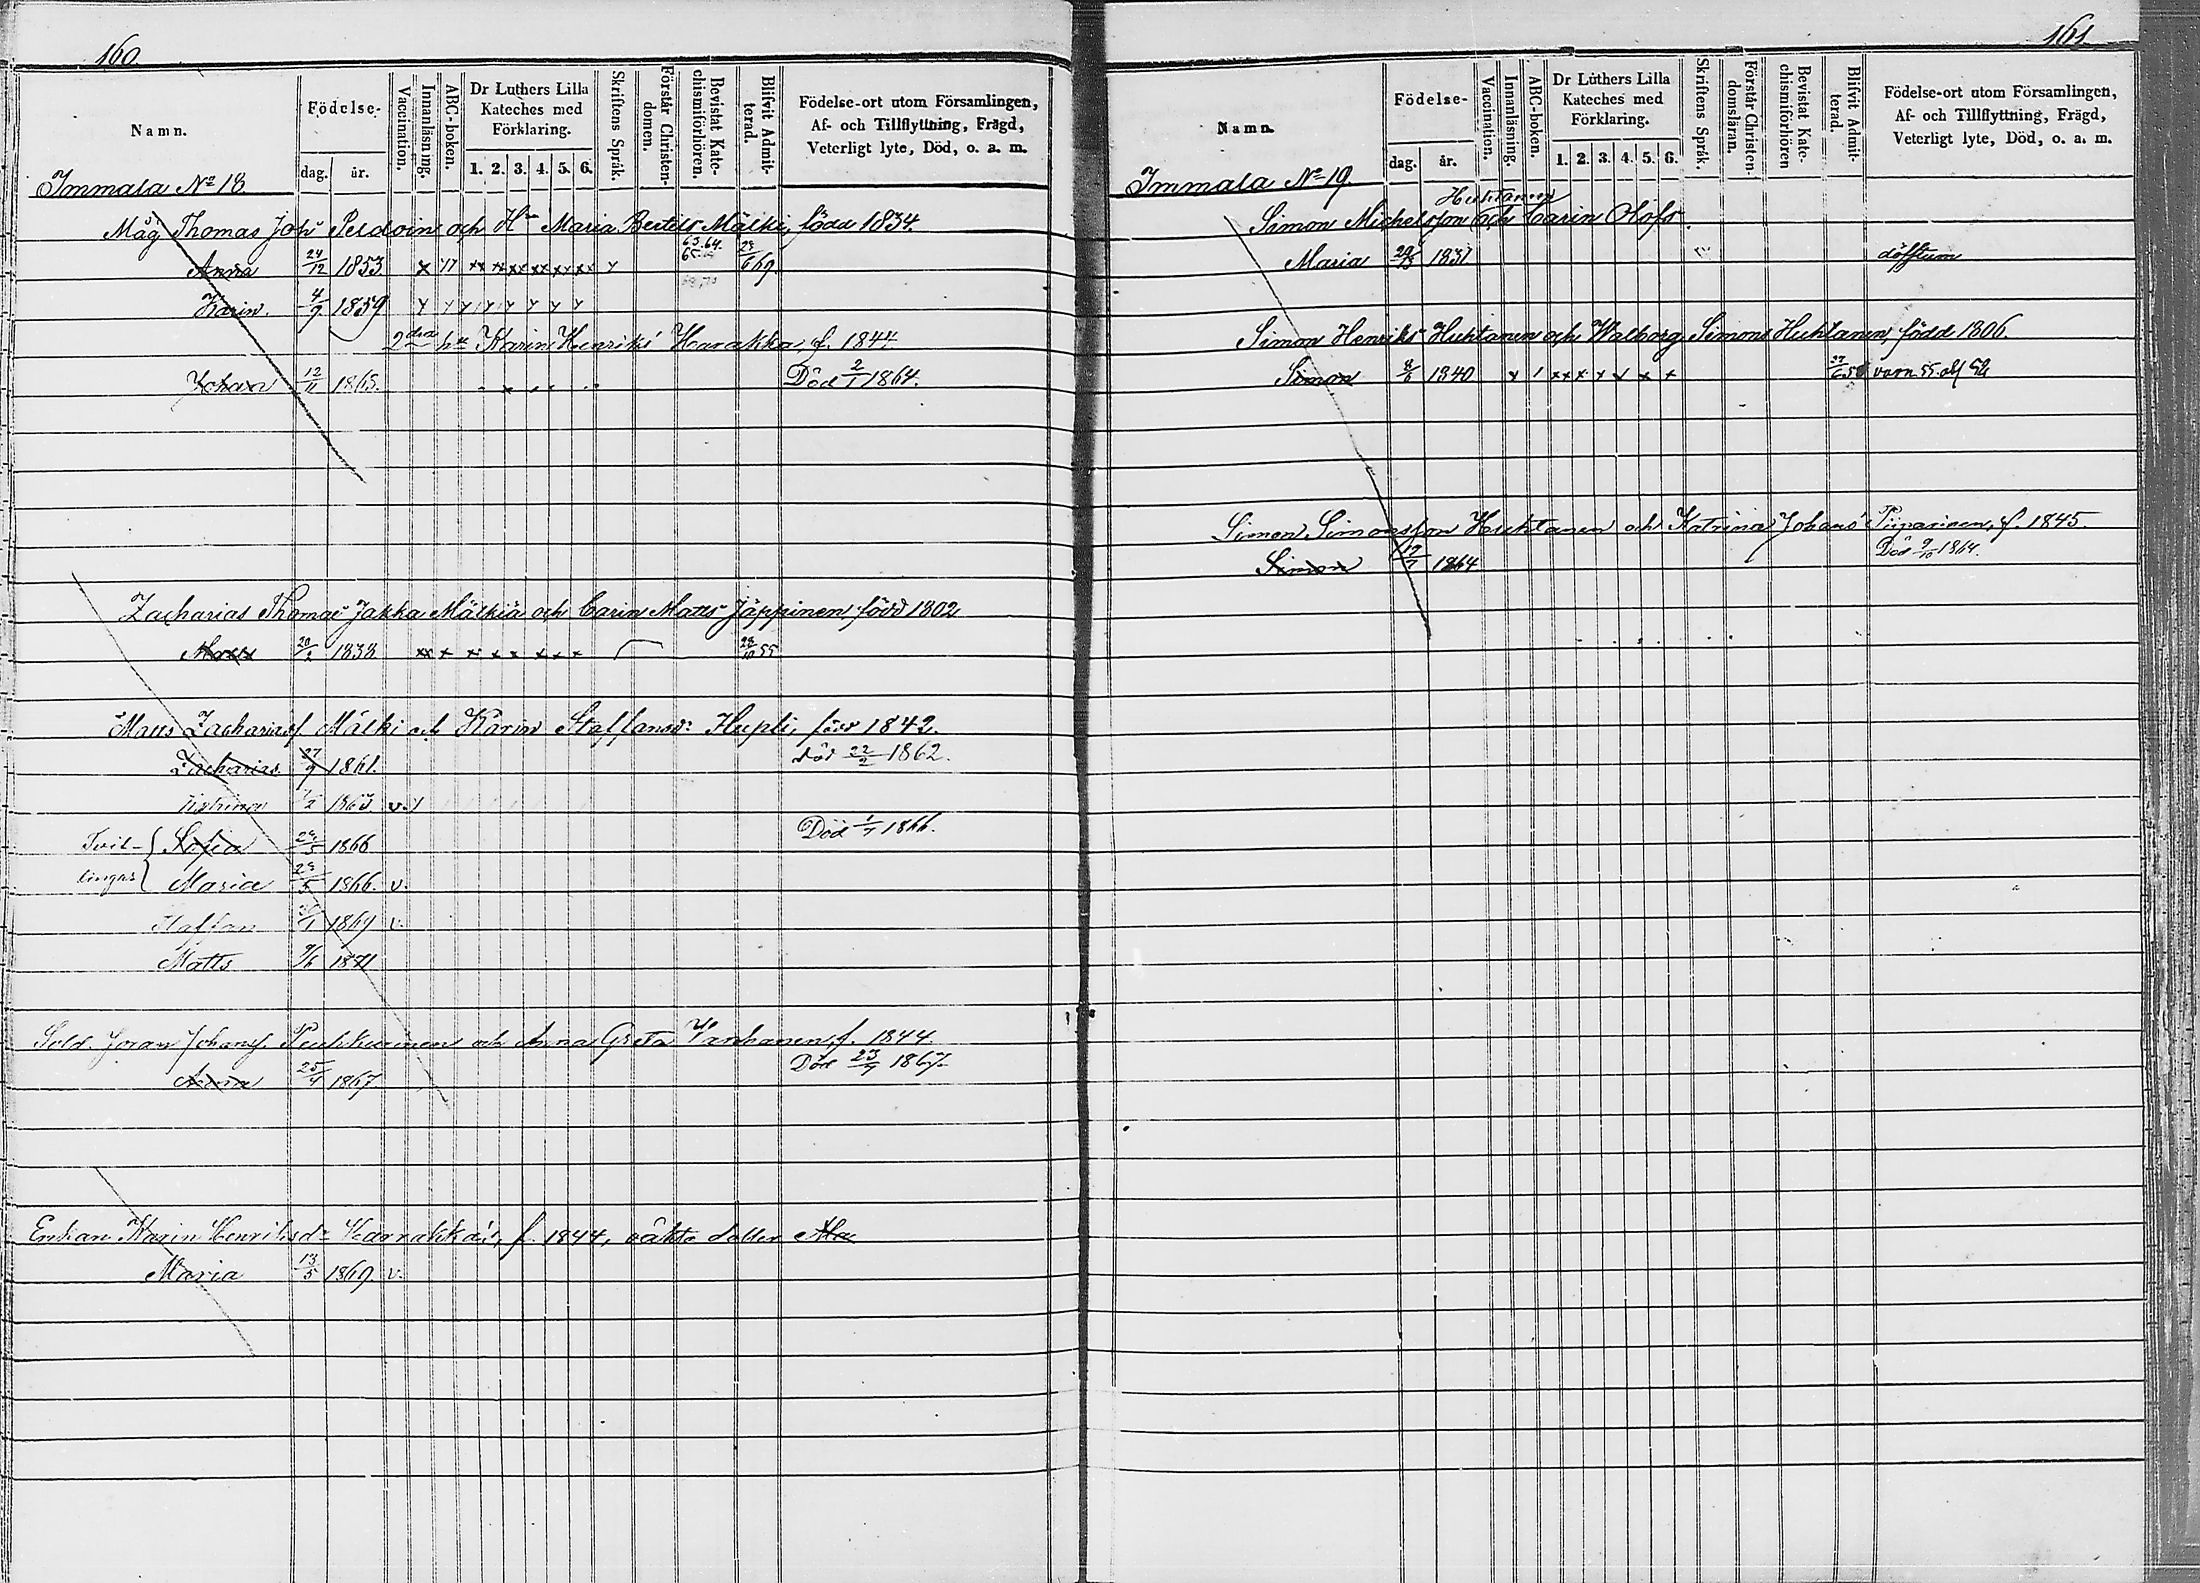 160
Namn.
Födelse-
dag. år.
Vaccination.
Innanläsning.
ABC-boken.
Dr Luthers Lilla Kateches med Förklaring.
1. 2. 3. 4. 5. 6.
Skriftens Språk.
Förstår Christendomen.
Bevistat Katechismiförhören.
Blifvit Admitterad.
Födelse-ort utom Församlingen,
Af- och Tillflyttning, Frägd,
Veterligt lyte, Död, o. a. m.
Immala No 18
Måg Thomas Joh: och Hu Maria Bertils Mälki, född 1834.
Anna 24/12 1853 x 63.64. 69.
Karin. 4/9 1859
2dra hu Karin Henriks Harakka, f. 1844
Johan 12/11 1865. Död 2/1 1864.
Zacharias Thomas Jakka Mälkiä och Carin Matts Jäppinen, född 1802
Matts 20/2 1838 28/10 55
Matts Zachariasf Mälki och Karin Staffansdr Hupli, född 1842.
Zacharias. 27/9 1861. död 22/2 1862.
1/2 1863 v.
Tvil- Sofia 29/5 1866 Död 1/7 1866.
lingar Maria 29/5 1866. v.
Staffan 1869 v.
Matts 9/6 1871
Sold. Joran Johansf. och Anna Greta Vanhanen, f. 1844
Anna 25/4 1867 Död 23/9 1867
Enkan Karin Henriksdr Harrakka's, f. 1844, oäkta dotter
Maria 13/5 1869. v.
161
Namn.
Födelse-
dag. år.
Vaccination.
Innanläsning.
ABC-boken.
Dr Luthers Lilla Kateches med Förklaring.
1. 2. 3. 4. 5. 6.
Skriftens Språk.
Förstår Christendomsläran.
Bevistat Katechismiförhören
Blifvit Admitterad.
Födelse-ort utom Församlingen,
Af- och Tillflyttning, Frägd,
Veterligt lyte, Död, o. a. m.
Immala No 19.
Huhtanen
Simon Michelsson och Carin Olofs
Maria 1831 döfstum
Simon Henriks Huhtanen och Walborg Simons Huhtanen, född 1806.
Simon 8/6 1840
Simon Simonsson Huhtanen och Katrina Johans f. 1845
Simon 19/7 1864 Död 9/10 1864.